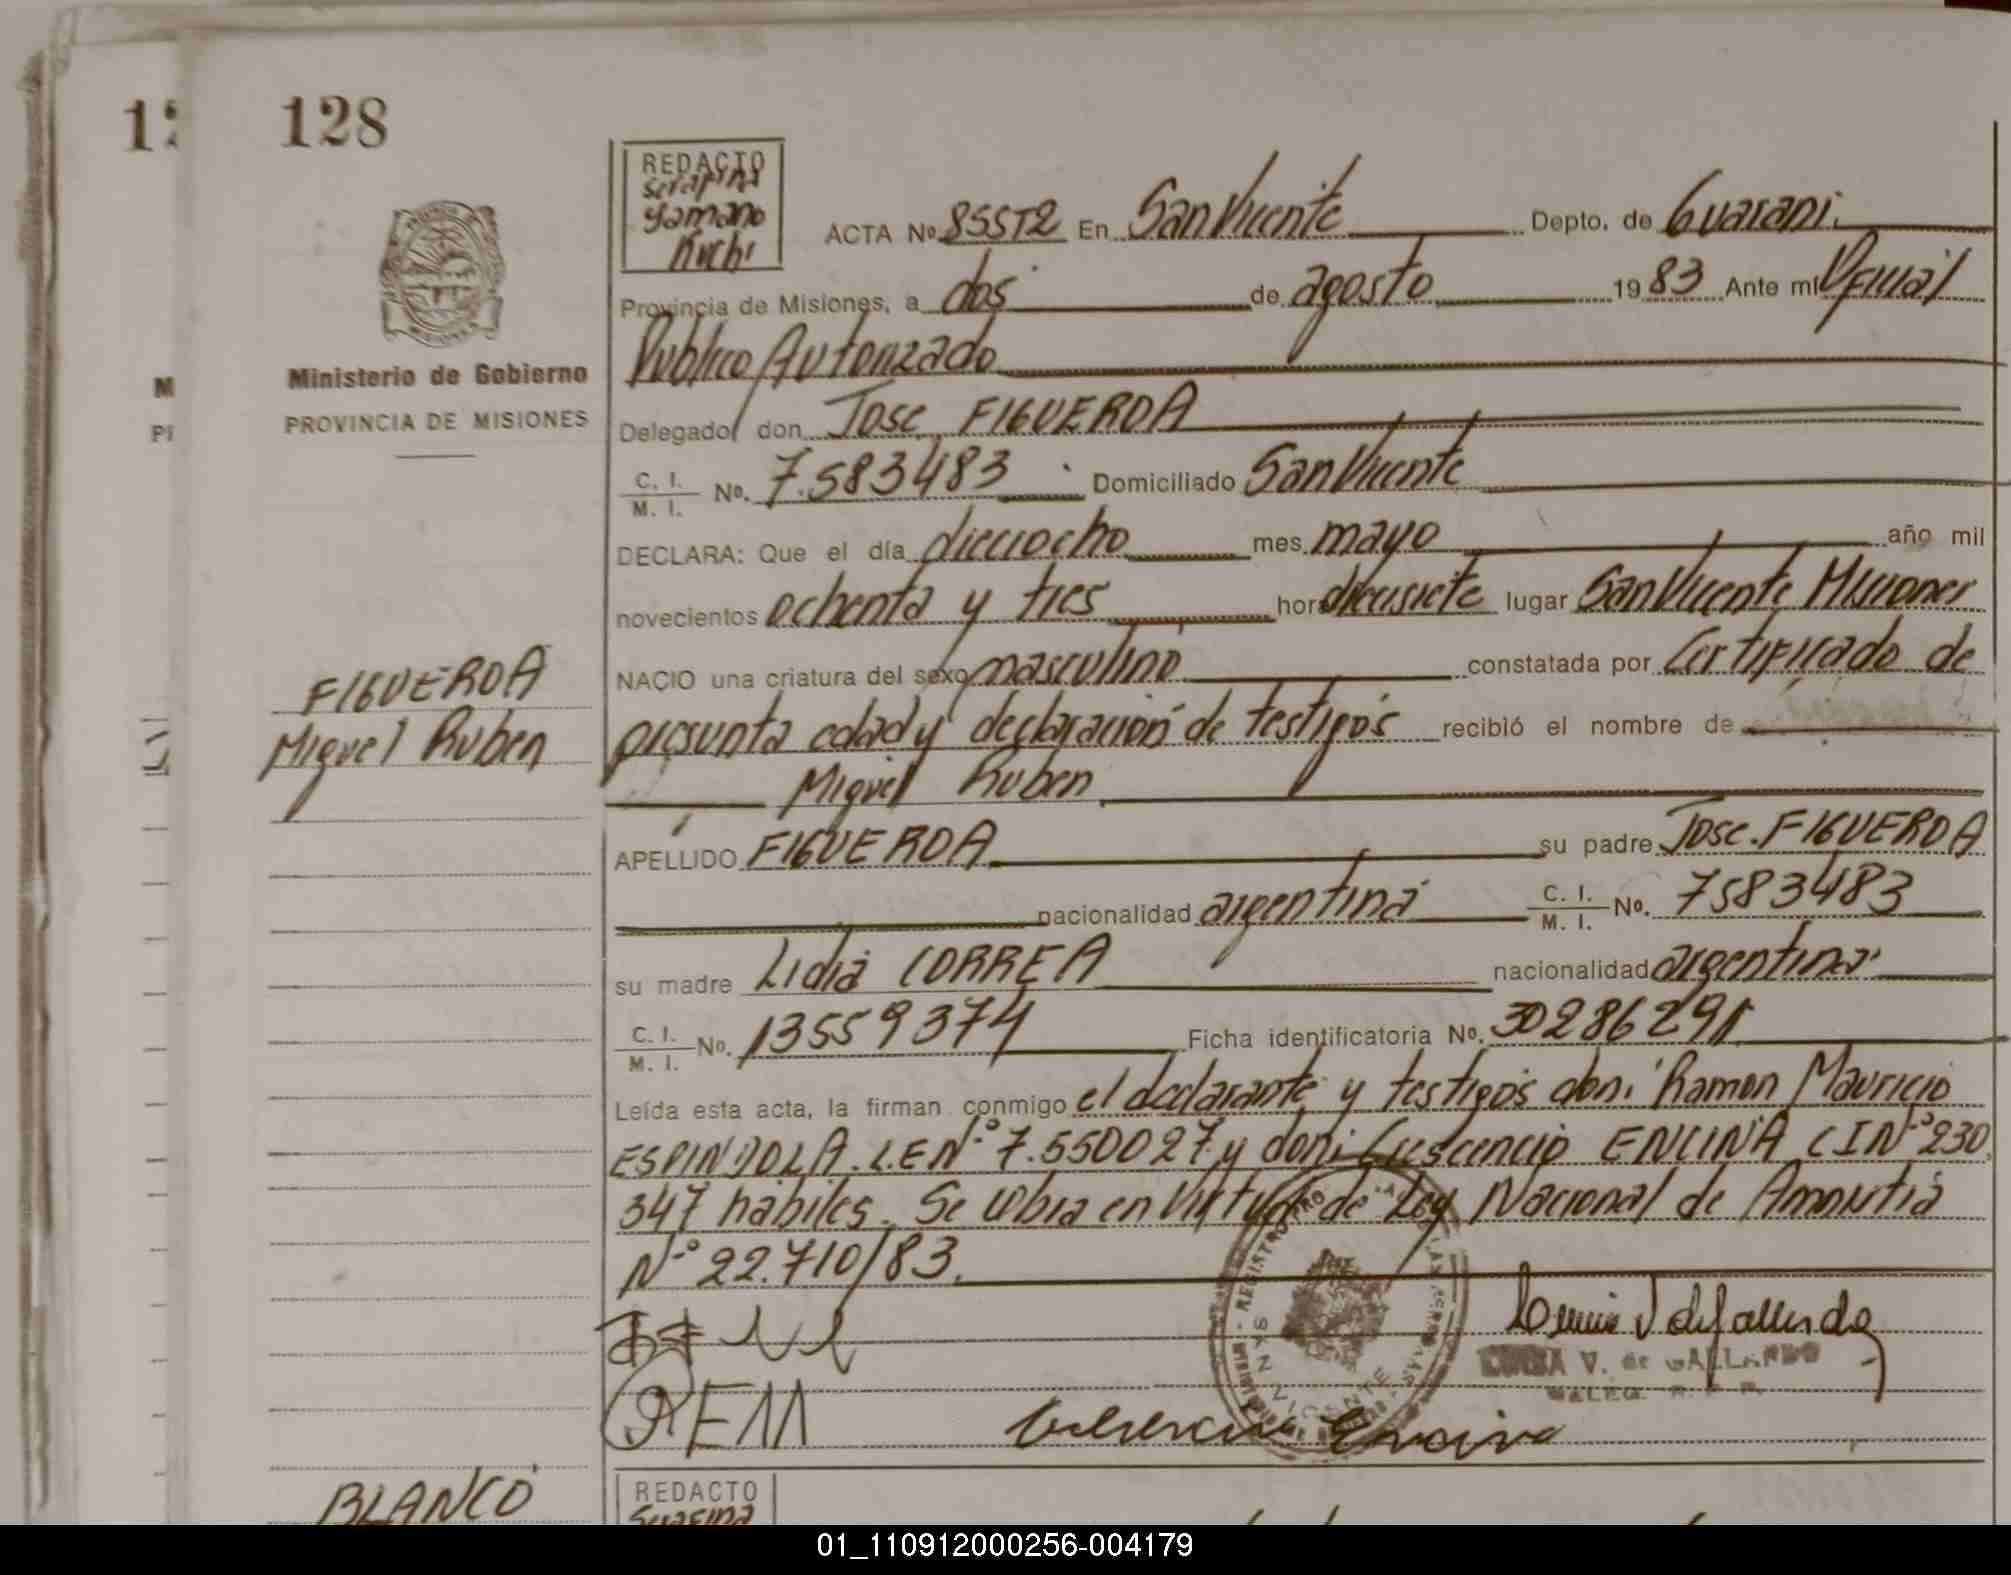 128
REDACTO
Serafina
Yamano
Kuchi
ACTA No. 855T2 En San Vicente Depto. de Guarani.
Provincia de Misiones, a dos de agosto 1983 Ante mi Oficial
Publico Autorizado
Ministerio de Gobierno
PROVINCIA DE MISIONES
Delegado don Jose FIGUEROA
C. I. / M. I. No. 7.583483 Domiciliado San Vicente
DECLARA: Que el día dieciocho mes mayo año mil
novecientos ochenta y tres hora diecisiete lugar San Vicente Misiones
NACIO una criatura del sexo masculino constatada por Certificado de
presunta edad y declaración de testigos recibió el nombre de
Miguel Ruben
FIGUEROA
Miguel Ruben
APELLIDO FIGUEROA su padre Jose. FIGUEROA
nacionalidad argentina C. I. / M. I. No. 7583483
su madre Lidia CORREA nacionalidad argentina
C. I. / M. I. No. 13559374 Ficha identificatoria No. 30286291
Leída esta acta, la firman conmigo el declarante y testigos don: Ramon Mauricio
ESPINDOLA. L.E Nº 7.550027 y don: Crescencio ENCINA CI Nº 230.
347 habiles. Se labra en Virtud de Ley Nacional de Amnistia
Nº 22.710/83.
SAN VICENTE
V. de GALLARDO
REM
Encina
BLANCO
REDACTO
Serafina
01_110912000256-004179